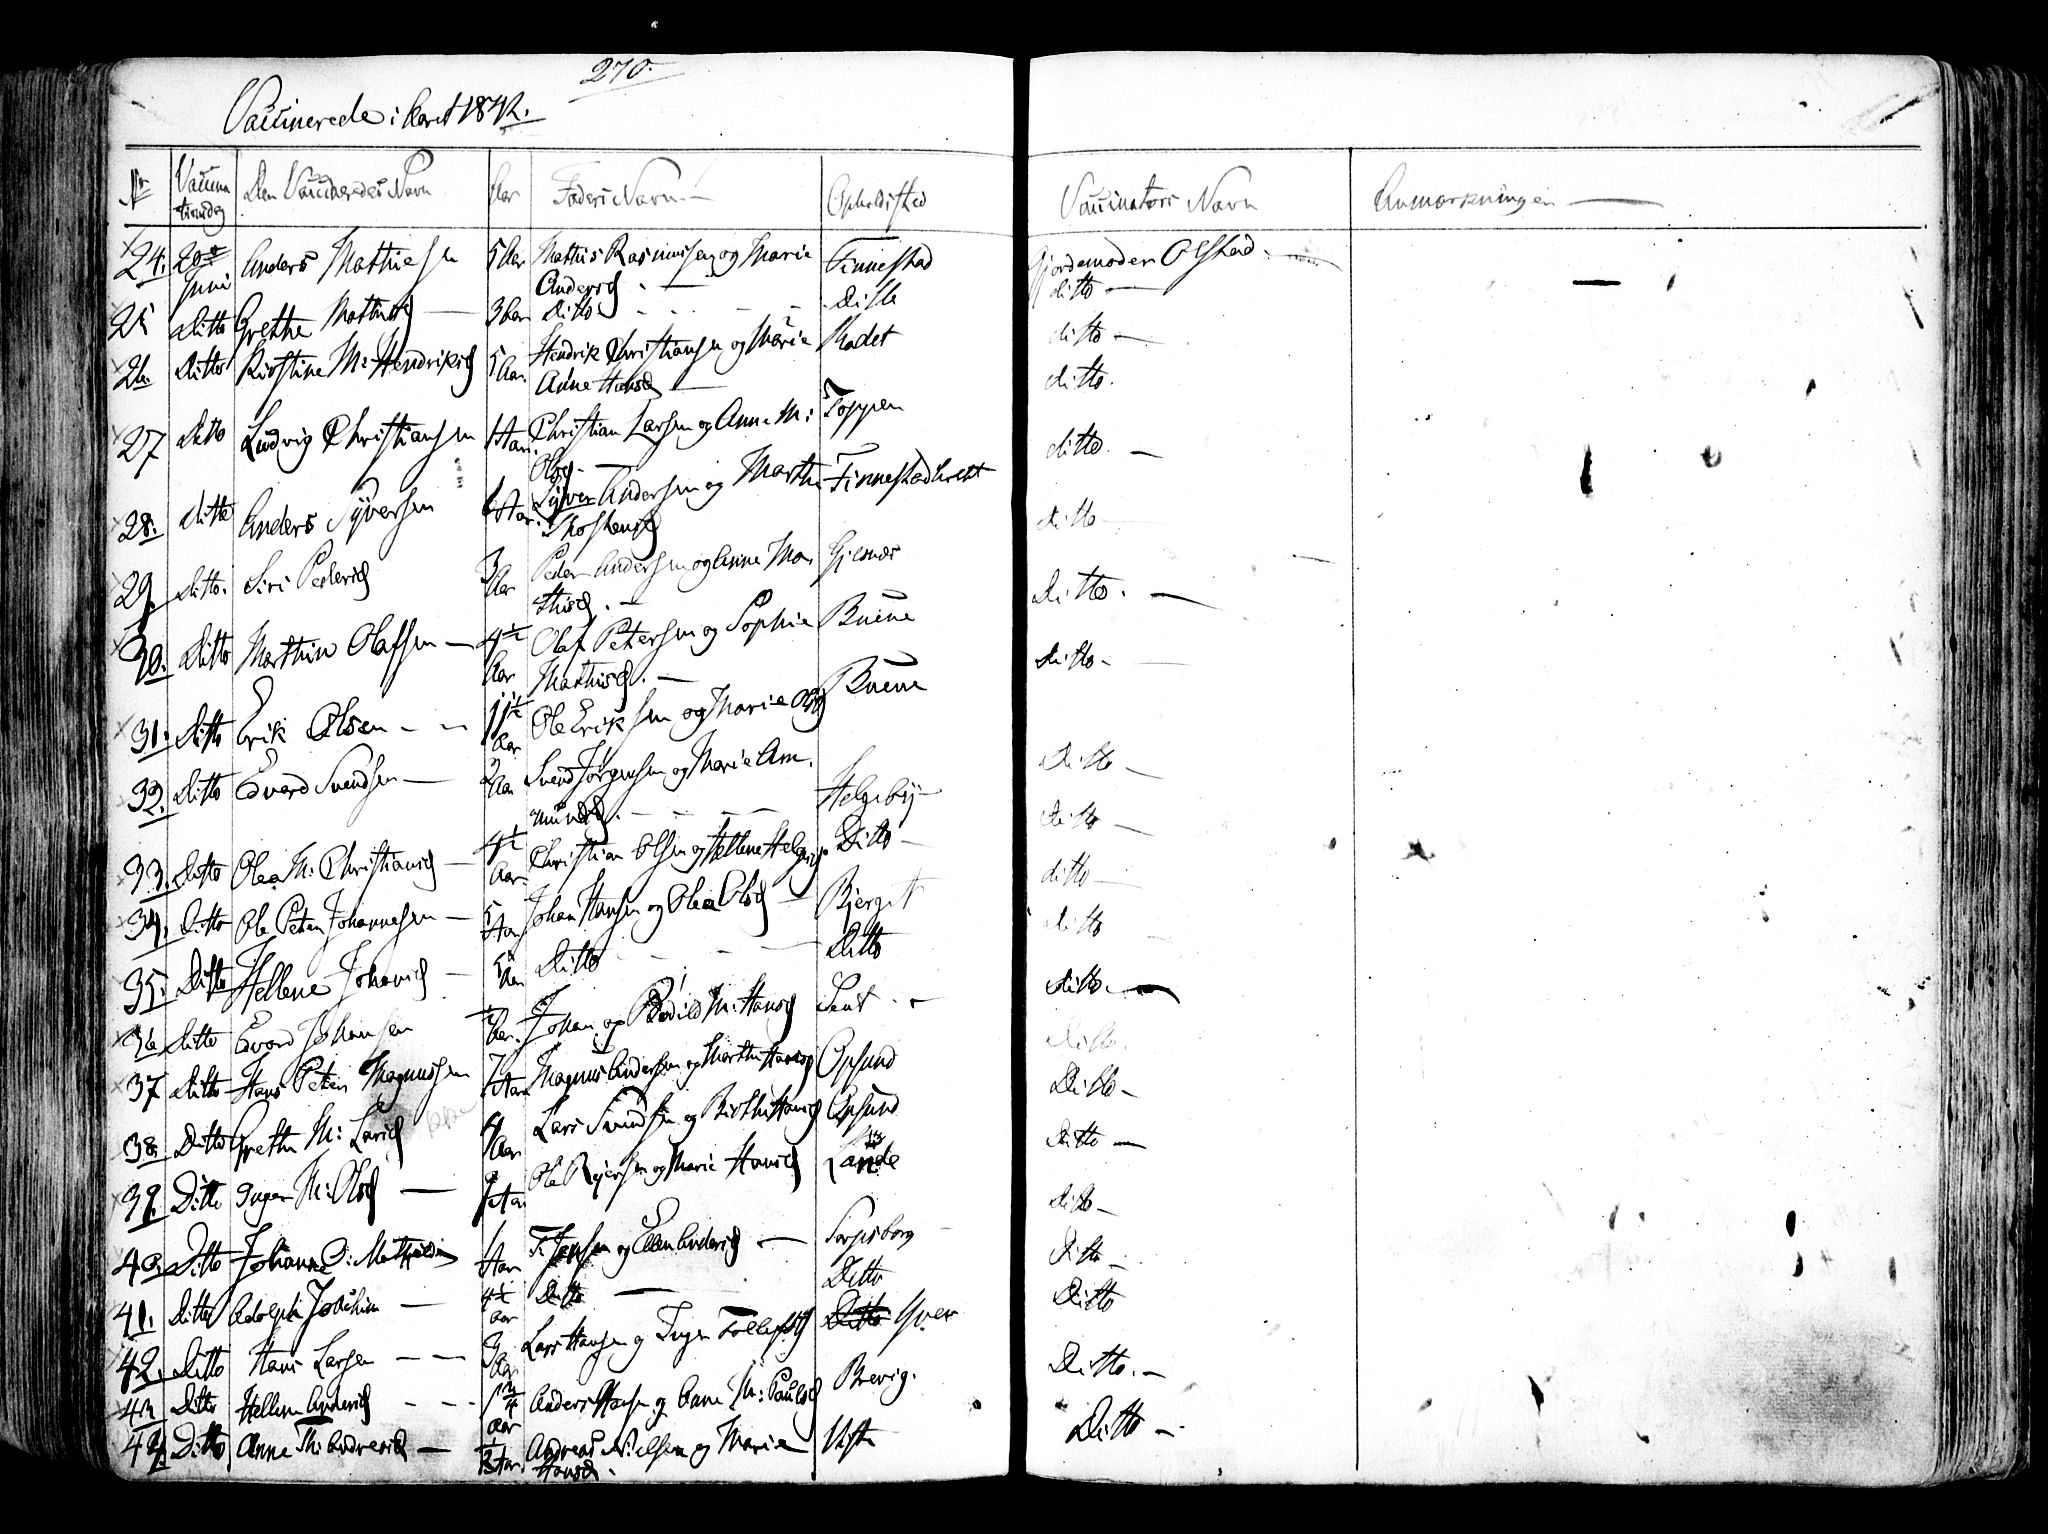 270.
Vaccinerede i Aaret 1842.
Nr Vaccina tionsdag Den Vaccineredes Navn Aar Faders Navn Opholdsted Vaccinators Navn Anmærkninger
24. 20de Juni Anders Mathiesen 5 Aar Mathis Rasmussen og Marie Finnestad Gjordemoder Olstad
Andersd. ditto
25 Ditto Grethe Mathisd 3 Aar Ditto Ditto ditto
26. Ditto Kirstine M: Hendriksd 5 Aar. Hendrik Christiansen og Marie Stadet ditto.
Anne Hansd
27 Ditto Ludvig Christiansen 1 Aar. Christian Larsen og Anne M: Toppen ditto.
Olsd.
28. Ditto Anders Syversen Aar. Syver Andersen og Marthe Finnestad Ditto
Thostensd
29. Ditto. Siri Pedersd 3 Aar Peder Andersen og Anne Ma Gjesnæs Ditto.
thisd.
30. Ditto Marthin Olafsen 4½ Aar Olaf Petersen og Sophie Buene Ditto
Mathisd.
31. Ditto Erik Olsen 1½ Aar Ole Eriksen og Marie Olsd Buene Ditto
32. Ditto Edvard Svendsen 2 Aar Svend Jørgensen og Marie Am. Helgeby Ditto
mundsd.
33. Ditto Olea M: Christiansd 4½ Aar. Christian Olsen og Hellene Helgesd. Ditto ditto
34. Ditto Ole Peter Johannesen 5 Aar Johan Hansen og Olea Olsd Bjerget ditto
35. Ditto Hellene Johansd 5 Aar Ditto Ditto ditto.
36 Ditto Edvard Johansen ½ Aar. Johan og Bodild M: Hansd Ditto.
37 Ditto Hans Peter Magnussen 7 Aar Magnus Andersen og Marthe Hansd Opsund Ditto
38. Ditto Grethe M: Larsd 4 Aar Lars Svendsen og Birthe Hansd Opsund Ditto
39. Ditto Inger M: Olsd Aar. Ole Rejersen og Marie Hansd Lande Ditto
40. Ditto Johanne D: Mathilde 1 Aar F. Jensen og Ellen Andersd Sarpsborg Ditto
41. Ditto Adolph Jochim 4½ Aar Ditto Ditto Ditto
42. Ditto Hans Larsen 3 Aar Lars Hansen og Inger Tollefsd Ditto Yven Ditto.
43 Ditto Hellene Andersd 1¾ Aar Anders Hansen og Anne M: Paulsd Brevig. Ditto
44. Ditto Anne Th: Andreasd ⅓ Aar. Andreas Nielsen og Marie Viste
Hansd.